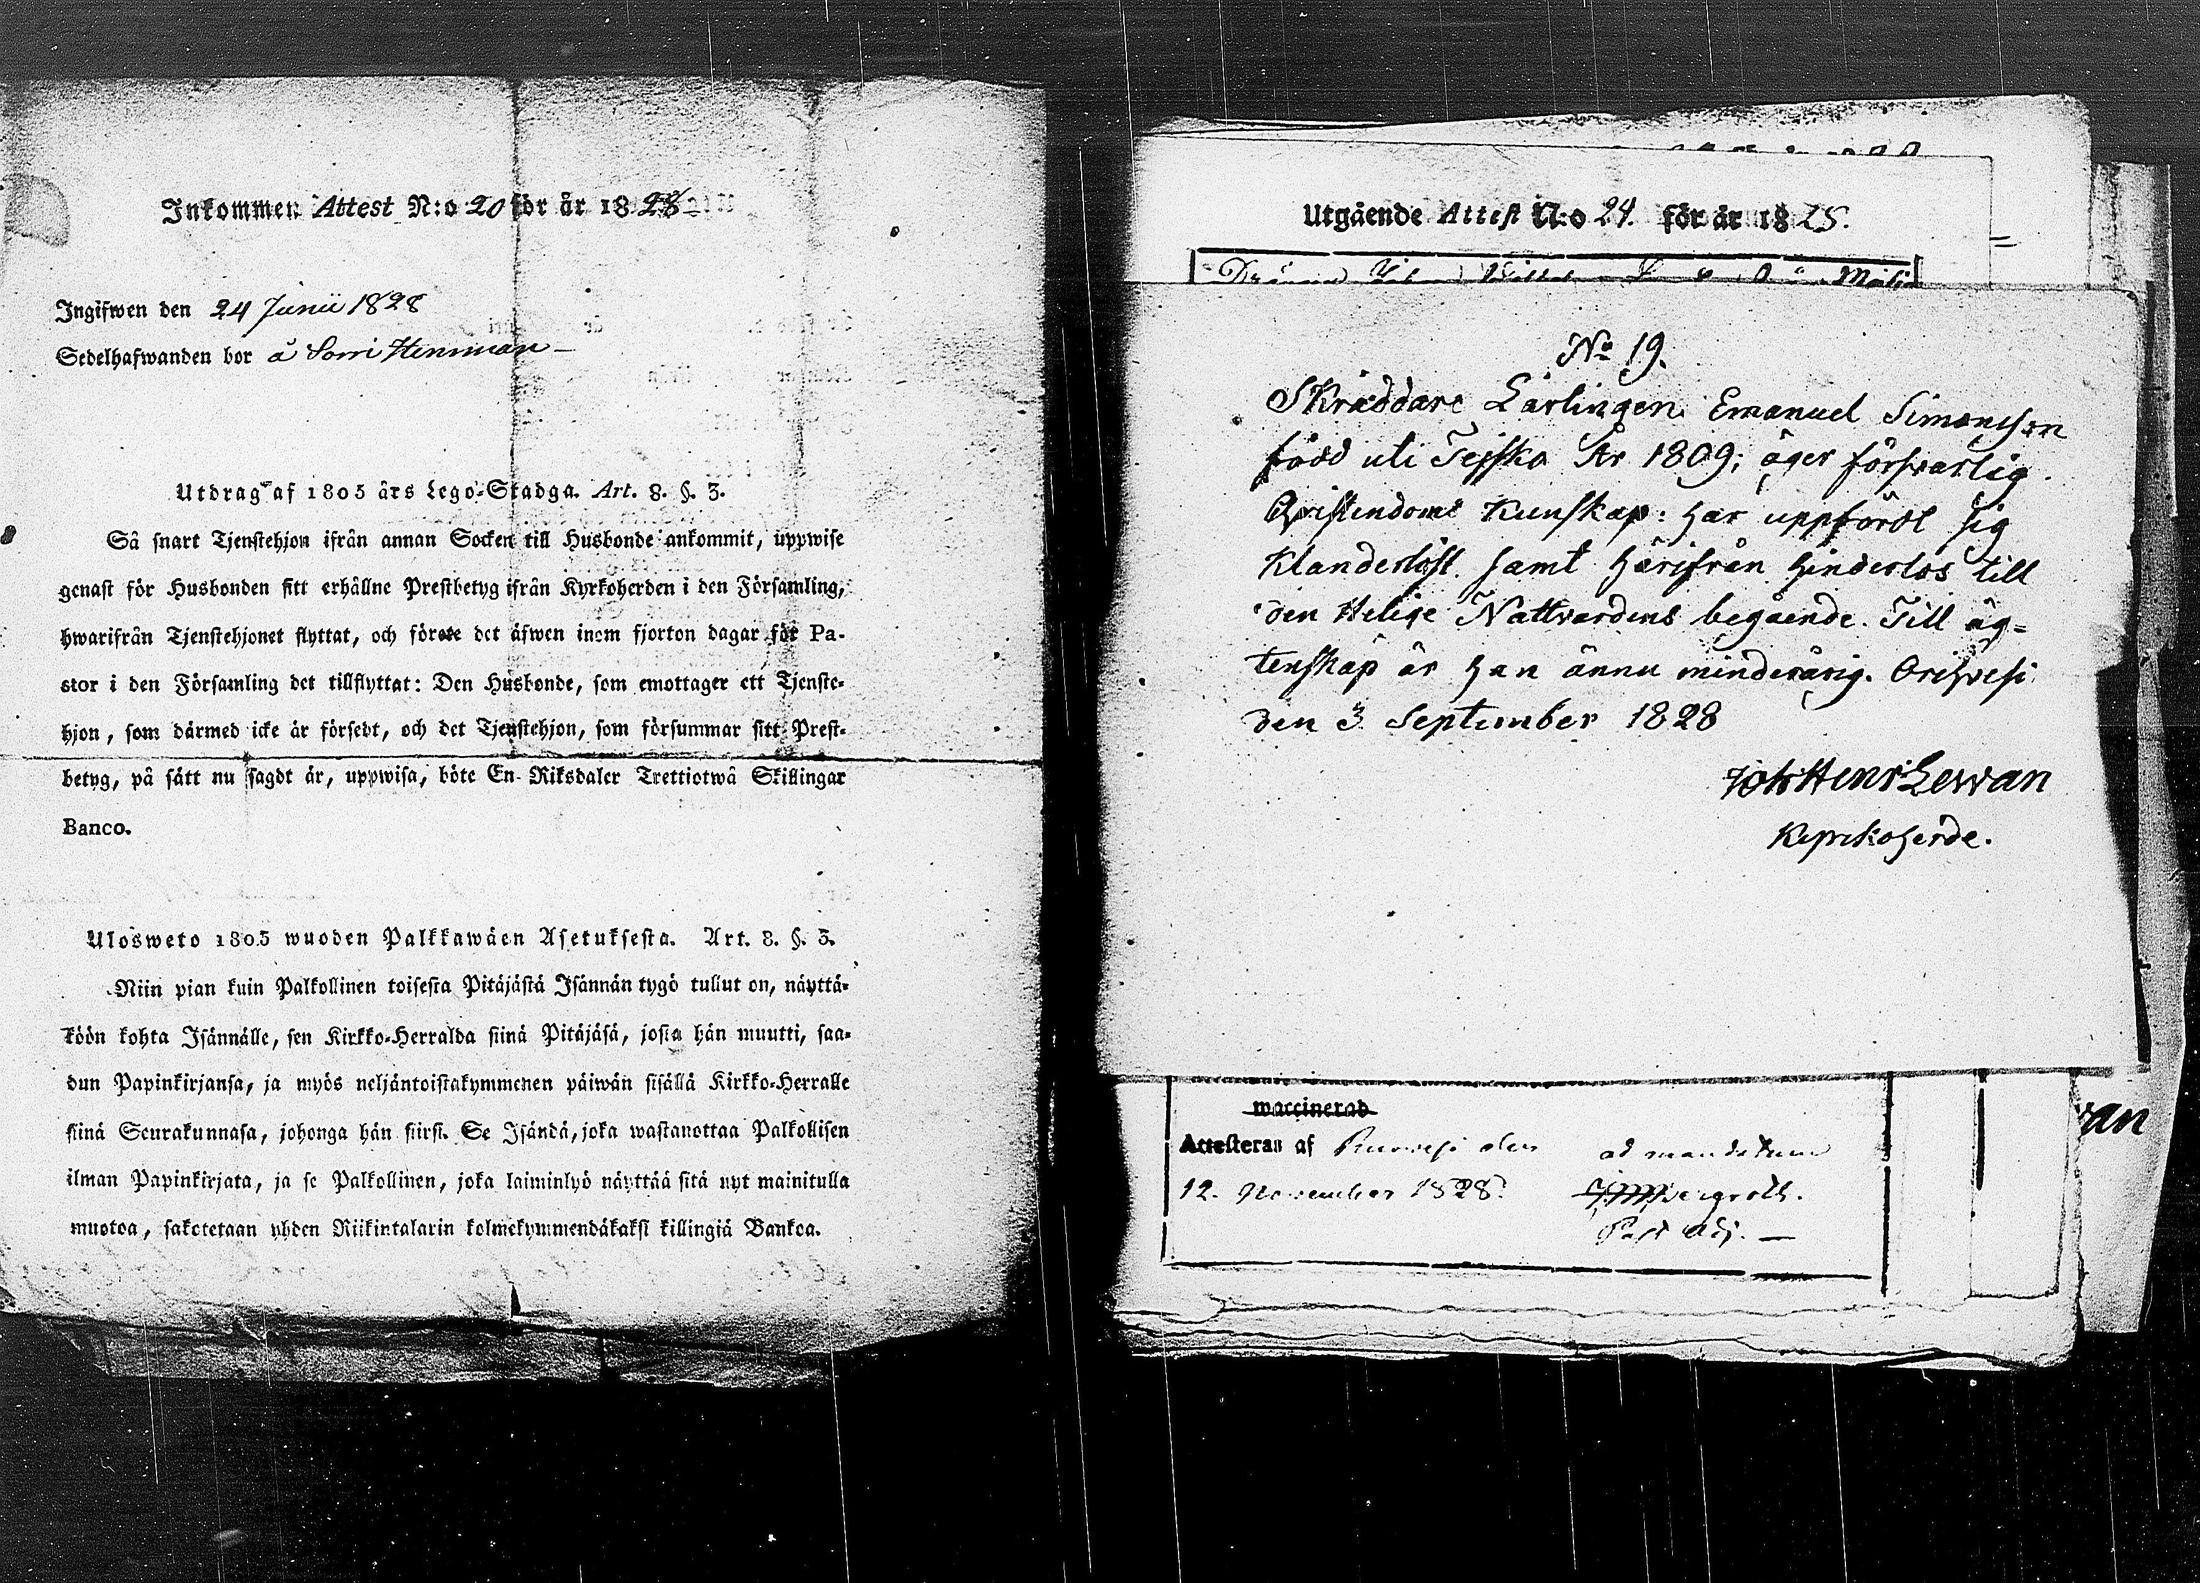 Inkommen Attest N:o 20 för år 1828
Ingifwen den 24 Junii 1828
Sedelhafwanden bor å Sorri Hemman
Utdrag af 1805 års Lego-Stadga. Art. 8. §. 3.
Så snart Tjenstehjon ifrån annan Socken till Husbonde ankommit, uppwise
genast för Husbonden sitt erhållne Prestbetyg ifrån Kyrkoherden i den Församling,
hwarifrån Tjenstehjonet flyttat, och förete det äfwen inom fjorton dagar för Pa-
stor i den Församling det tillflyttat: Den Husbonde, som emottager ett Tjenste-
hjon, som därmed icke är försedt, och det Tjenstehjon, som försummar sitt Prest-
betyg, på sätt nu sagdt är, uppwisa, böte En Riksdaler Trettiotwå Skillingar
Banco.
Ulosweto 1805 wuoden Palkkawäen Asetuksesta. Art. 8. §. 3.
Niin pian kuin Palkollinen toisesta Pitäjästä Isännän tygö tullut on, näyttä-
köön kohta Isännälle, sen Kirkko-Herralda siinä Pitäjäsä, josta hän muutti, saa-
dun Papinkirjansa, ja myös neljäntoistakymmenen päiwän sisällä Kirkko-Herralle
siinä Seurakunnasa, johonga hän siirsi. Se Isändä, joka wastanottaa Palkollisen
ilman Papinkirjata, ja se Palkollinen, joka laiminlyö näyttää sitä nyt mainitulla
muotoa, sakotetaan yhden Riikintalarin kolmekymmendäkaksi killingiä Bankoa.
Utgående Attest N:o 24. för år 1828.
No 19.
Skräddare Lärlingen Emanuel Simonsson
född uti Tejsko År 1809; äger försvarlig
Christendoms Kunskap: har uppfördt sig
Klanderlöst samt härifrån hinderlös till
den Helige Nattvardens begående. Till äg-
tenskap är han ännu minderårig. Orihvesi
den 3 September 1828
Joh Henr Lewan
Kyrkoherde.
waccinerad
Attesteras af Ruovesi den
12. November 1828.
ad mandatum
Past Adj.